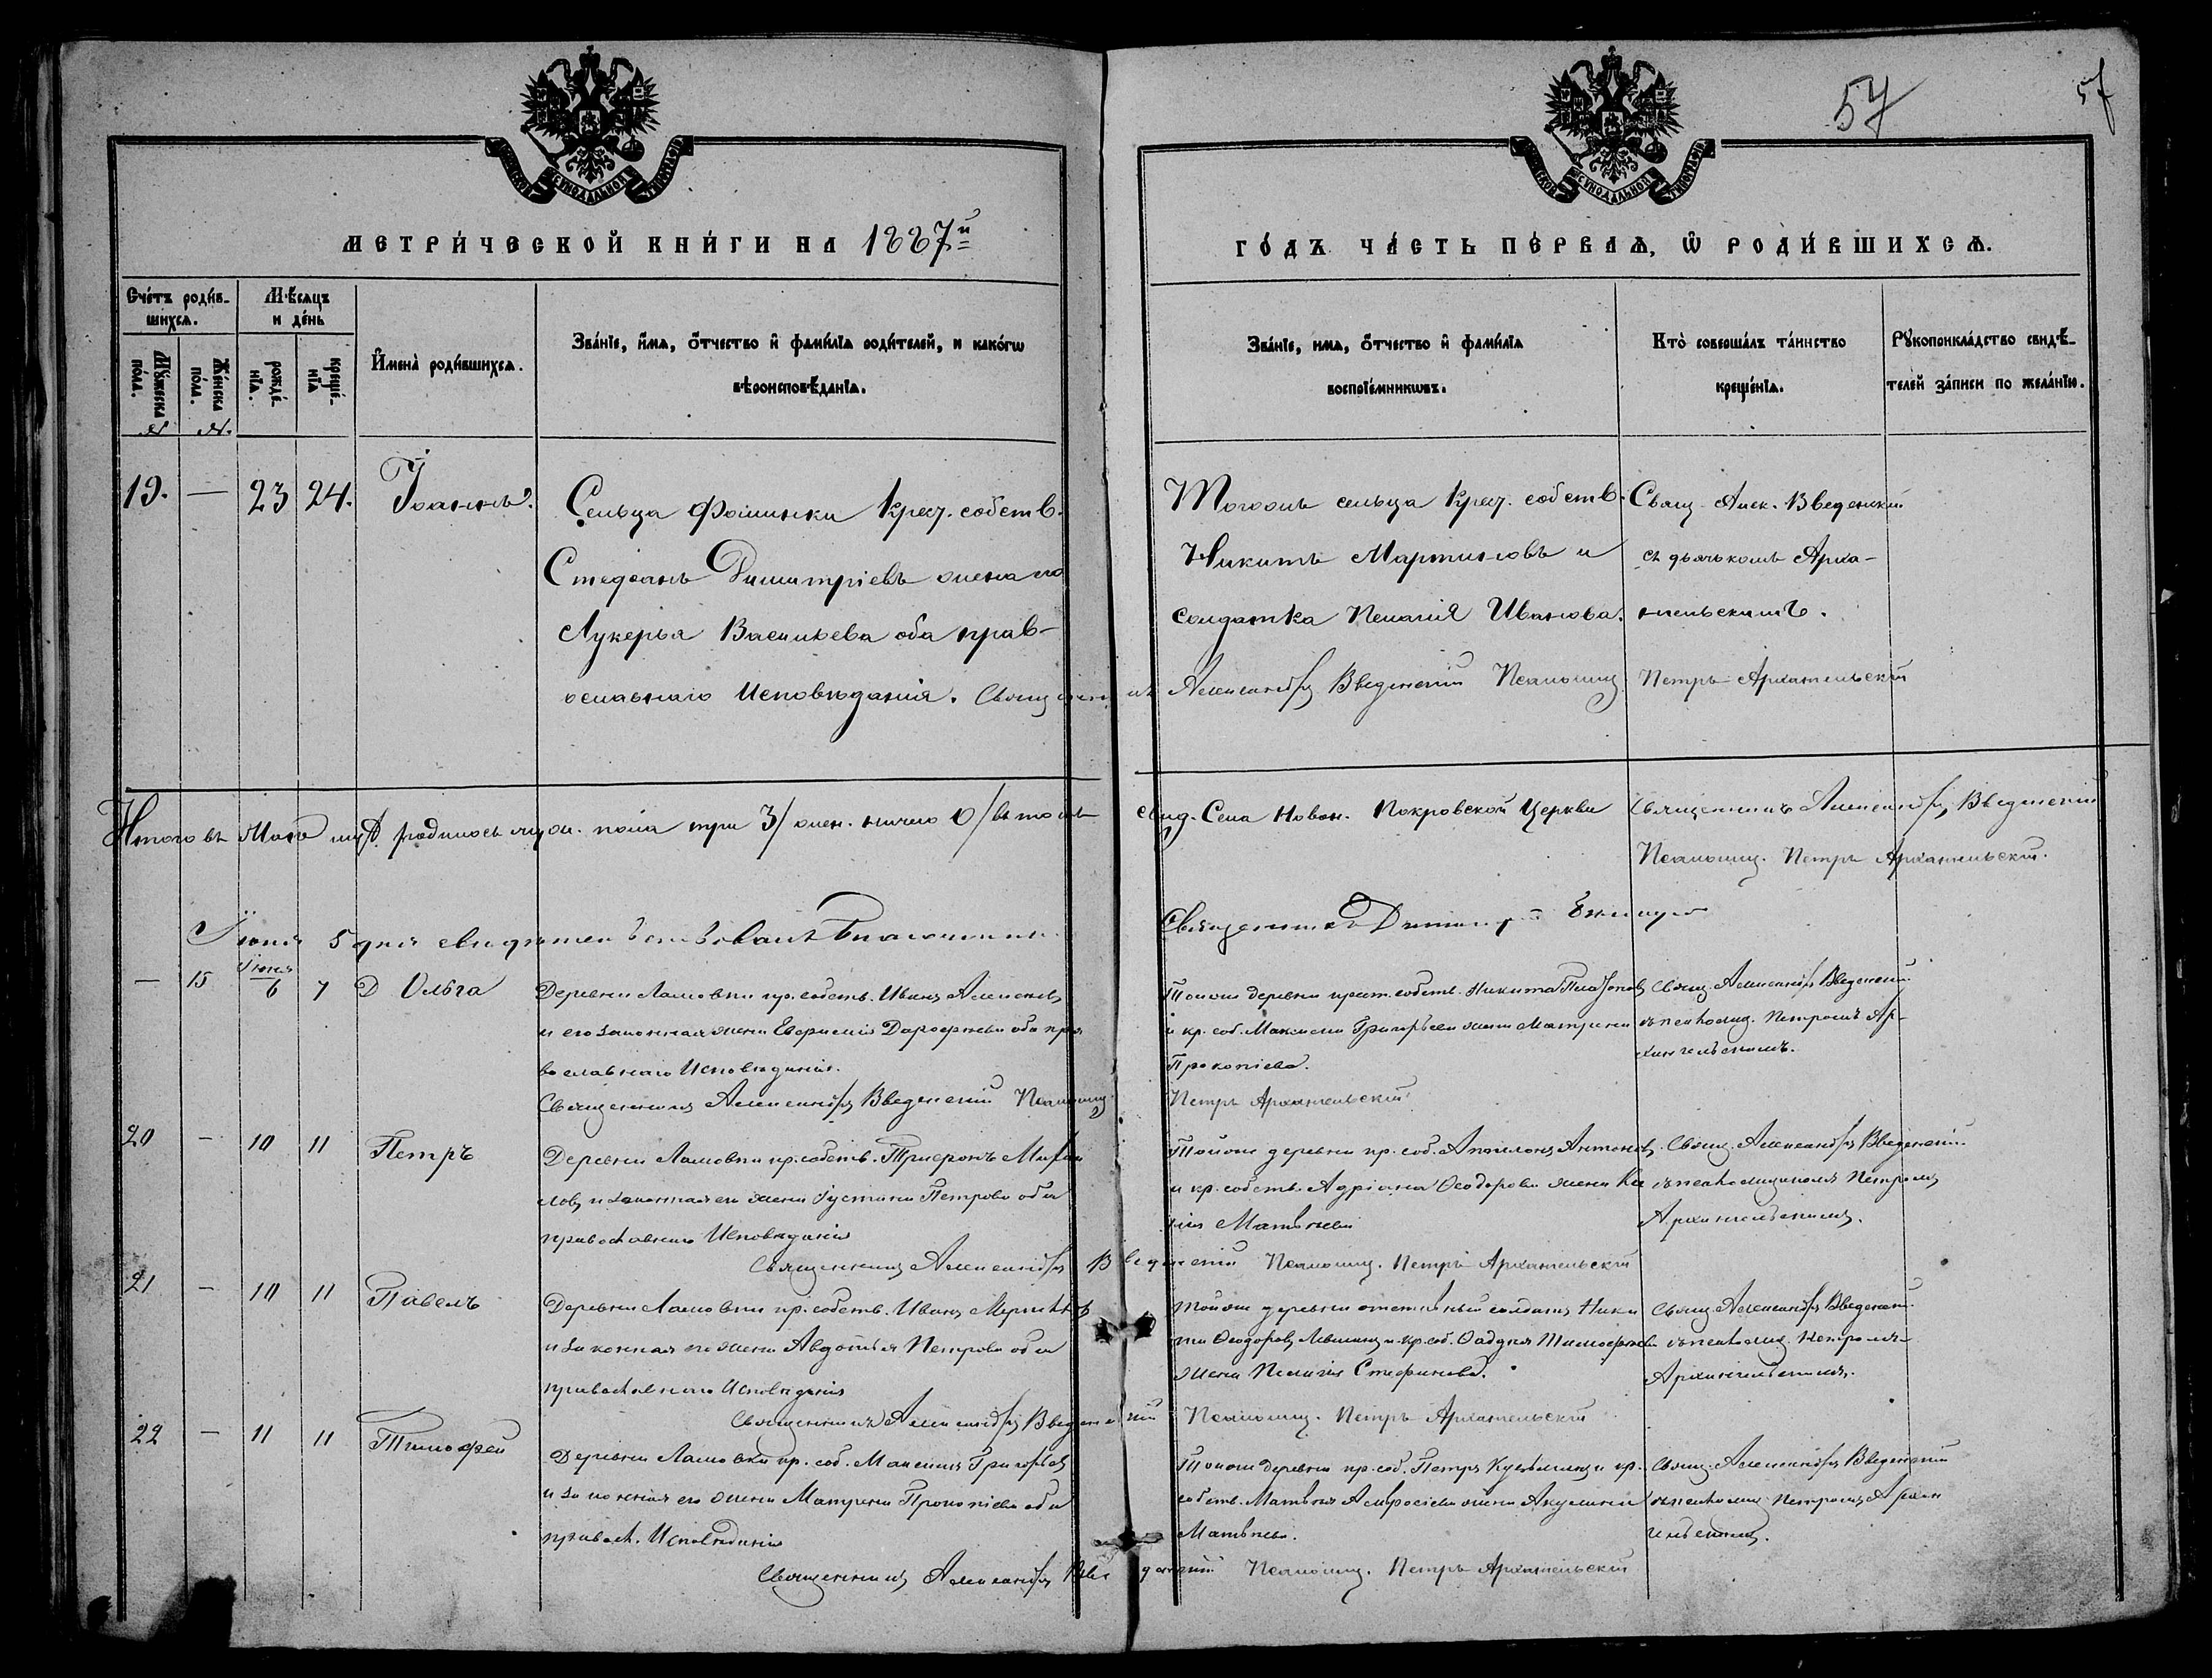 57
57
МЕТРИ́ЧЕСКОЙ КНИ́ГИ НА 1887й
ГО́ДЪ ЧА́СТЬ ПЕ́РВАѦ, Ѡ РОДИ́ВШИХСѦ.
Сче́тъ роди́в-
шихсѧ.
Мѣ́сѧцъ
и де́нь
Му́жеска
по́ла.
Же́нска
по́ла.
рожде́-
нїѧ.
креще́-
нїѧ
Имена̀ роди́вшихсѧ.
Зва́нїе, и́мѧ, ѻ́тчество и фами́лїѧ роди́телей, и како́гѡ
вѣроисповѣ́данїѧ.
Зва́нїе, имѧ, ѻ́тчество и фами́лїѧ
воспрїе́мникѡвъ.
Кто̀ соверша́лъ та́инство
креще́нїѧ.
Рꙋкоприкла́дство свидѣ́-
телей за́писи по жела́нїю.
19. — 23 24. Іоаннъ.
Сельца Фошинки Крест. собств.
Стефанъ Димитріевъ жена его
Лукерья Васильева оба прав-
ославнаго Исповѣданія. Священникъ Александръ Введенскій Псаломщ. Петръ Архангельскій
Тогожъ сельца Крест. собств.
Никита Мартиновъ и
солдатка Пелагія Иванова.
Свящ. Алек. Введенскій
съ дьячкомъ Арха-
нгельскимъ.
Итого въ Маѣ родилось муж. пола три 3/ жен. ничего 0/ въ томъ свид. Села Новон. Покровской Церкви Священникъ Александръ Введенскій
Псаломщ. Петръ Архангельскій.
Іюня 5 дня свидѣтельствовалъ Благочинн. Священникъ Димитрій
— 15 Іюня 6 7 Ольга
Деревни Ламовки кр. собств. Иванъ Алексѣевъ
и его законная жена Евфимія Дорофеева оба пра
вославнаго Исповѣданія.
Священникъ Александръ Введенскій Псаломщ. Петръ Архангельскій
Тойже деревни крест. собств. Никита Платоновъ
и кр. соб. Максима Григорьева жена Матрена
Прокопіева.
Свящ. Александръ Введенскій
съ псаломщ. Петромъ Ар-
хангельскимъ.
20 — 10 11 Петръ
Деревни Ламовки кр. собств. Трифонъ Михаи
ловъ и законная его жена Іустина Петрова оба
православнаго Исповѣданія
Священникъ Александръ Введенскій Псаломщ. Петръ Архангельскій
Тойже деревни кр. соб. Аполлонъ Антоновъ
и кр. собств. Адріана Ѳеодорова жена
Матвѣева
Свящ. Александръ Введенскій
съ псаломщикомъ Петромъ
Архангельскимъ.
21 — 10 11 Павелъ
Деревни Ламовки кр. собств. Иванъ
и законная его жена Авдотья Петрова оба
православнаго Исповѣданія
Священникъ Александръ Введенскій Псаломщ. Петръ Архангельскій
Тойже деревни отставный солдатъ Ники
та Ѳеодоровъ и кр. соб. Ѳаддея Тимофеева
жена Пелагія Стефанова.
Свящ. Александръ Введенскій
съ псаломщ. Петромъ
Архангельскимъ.
22 — 11 11 Тимофей
Деревни Ламовки кр. соб. Максимъ Григорьевъ
и законная его жена Матрена Прокопіева оба
правосл. Исповѣданія
Священникъ Александръ Введенскій Псаломщ. Петръ Архангельскій
Тойже деревни кр. соб. Петръ Кузьминъ и кр.
собств. Матвѣя Амвросіева жена Акулина
Матвѣева.
Свящ. Александръ Введенскій
съ псаломщ. Петромъ Архан
гельскимъ.